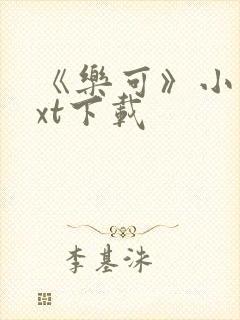 《樂可》小
xt下載
李基洙